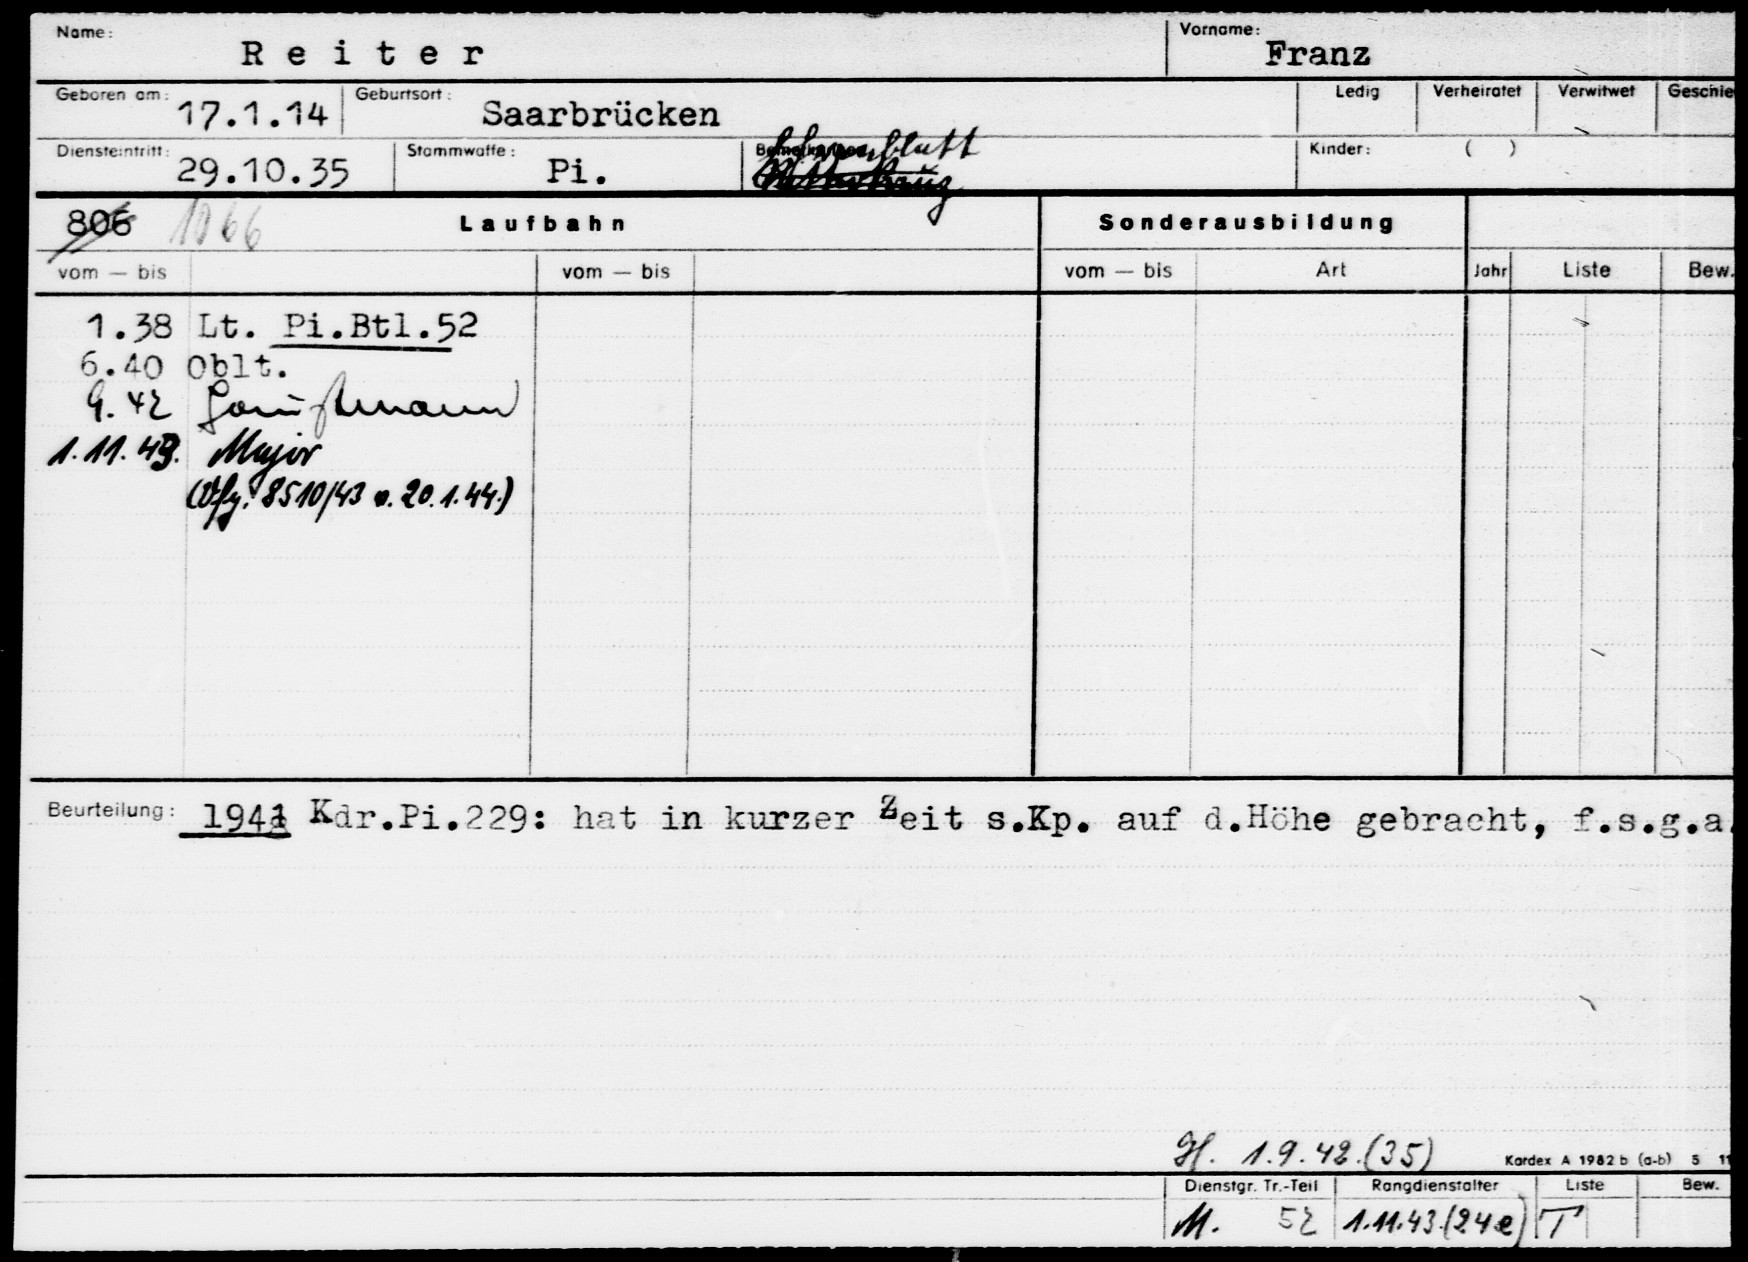 Name: Reiter Vorname: Franz
Geboren am: 17.1.14 Geburtsort: Saarbrücken Ledig Verheiratet Verwitwet Geschie
Diensteintritt: 29.10.35 Stammwaffe: Pi. Kinder: ( )
806 1066 Laufbahn Sonderausbildung
vom — bis vom — bis vom — bis Art Jahr Liste Bew.
1.38 Lt. Pi.Btl.52
6.40 Oblt.
9.42 Hauptmann
1.11.43. Major
(Vfg. 8510/43 v. 20.1.44.)
Beurteilung: 1941 Kdr.Pi.229: hat in kurzer Zeit s.Kp. auf d.Höhe gebracht, f.s.g.a.
H. 1.9.42.(35) Kardex A 1982 b (a-b) 5 11
Dienstgr. Tr.-Teil Rangdienstalter Liste Bew.
M. 52 1.11.43.(24e) T